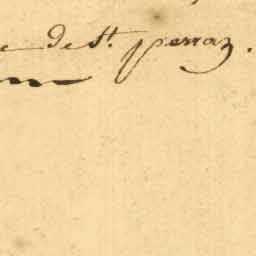 e de St. perraz.